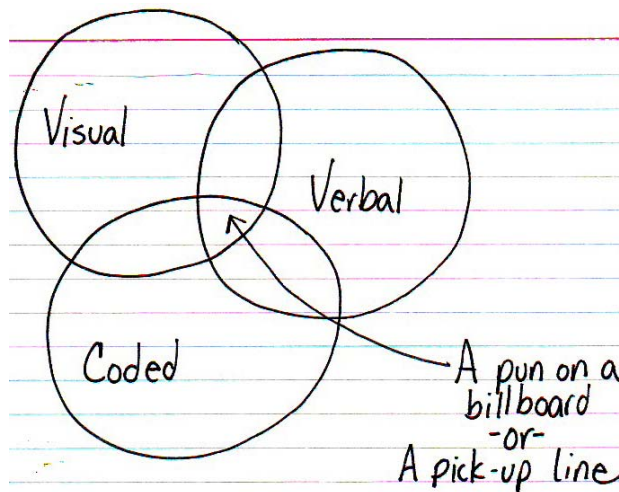 Visual
Verbal
Coded
A pun on a
billboard
-or-
A pick-up line